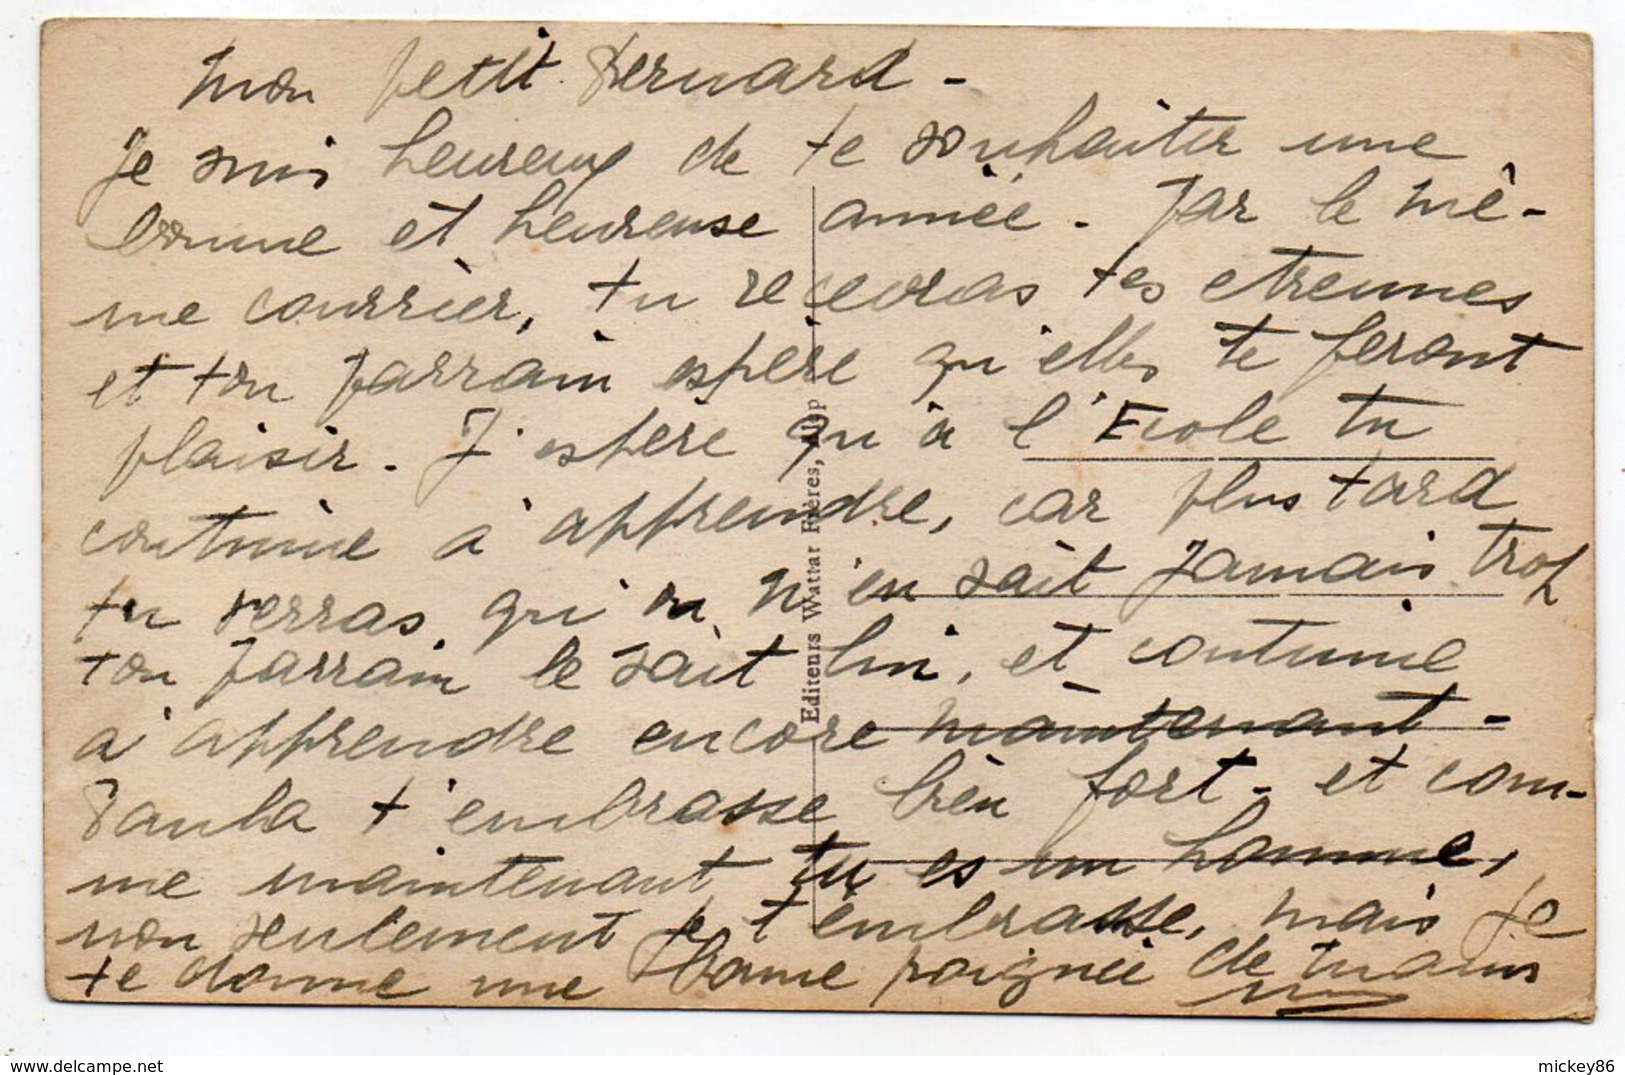 Mon petit Bernard -
Je suis heureux de te souhaiter une
bonne et heureuse année. Par le mê-
me courrier, tu recevras tes etrennes
et ton Parrain espère qu'elles te feront
plaisir. J'espère qu'à l'Ecole tu
continue à apprendre, car plus tard
tu verras qu'on n'en sait jamais trop
ton Parrain le sait lui, et continue
à apprendre encore maintenant -
Paula t'embrasse bien fort - et com-
me maintenant tu es un homme,
non seulement je t'embrasse, mais je
te donne une bonne poignée de mains
Editeurs Wattar Frères, Alep
mickey86
www.delcampe.net